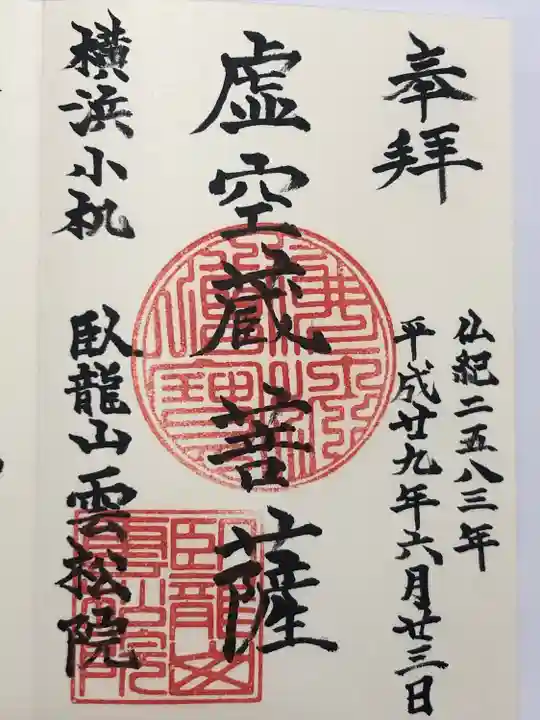 奉拝
仏紀二五八三年
平成廿九年六月廿三日
虚空蔵菩薩
横浜小机
臥龍山雲松院
臥龍山
雲松院